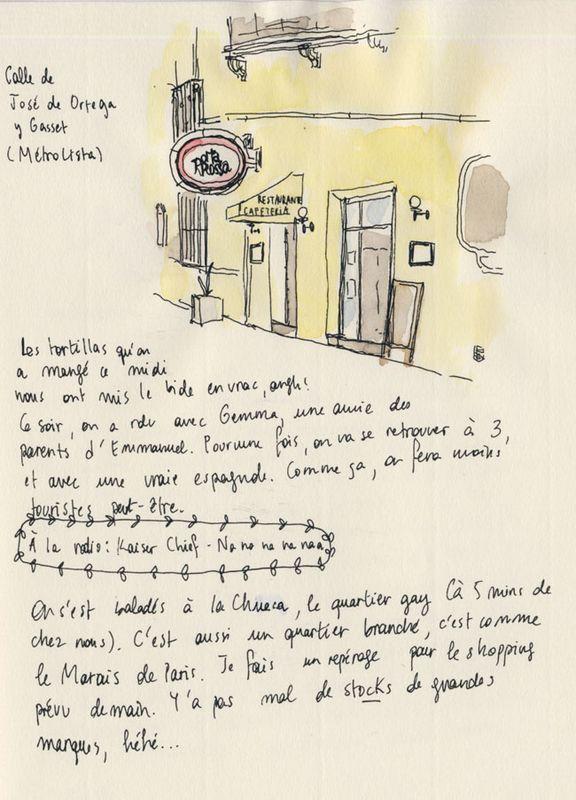 Calle de
José de Ortega
y Gasset
(Métro Lista)
Porta
Rossa
RESTAURANTE
CAFETERIA
Les tortillas qu'on
a mangé ce midi
nous ont mis le bide en vrac, arghs!
Ce soir, on a rdv avec Gemma, une amie des
parents d'Emmanuel. Pour une fois, on va se retrouver à 3,
et avec une vraie espagnole. Comme ça, on fera moins
touristes peut-être.
À la radio: Kaiser Chief - Na na na na naa
On s'est baladés à la Chueca, le quartier gay (à 5 mins de
chez nous). C'est aussi un quartier branché, c'est comme
le Marais de Paris. Je fais un repérage pour le shopping
prévu demain. Y'a pas mal de stocks de grandes
marques, héhé...